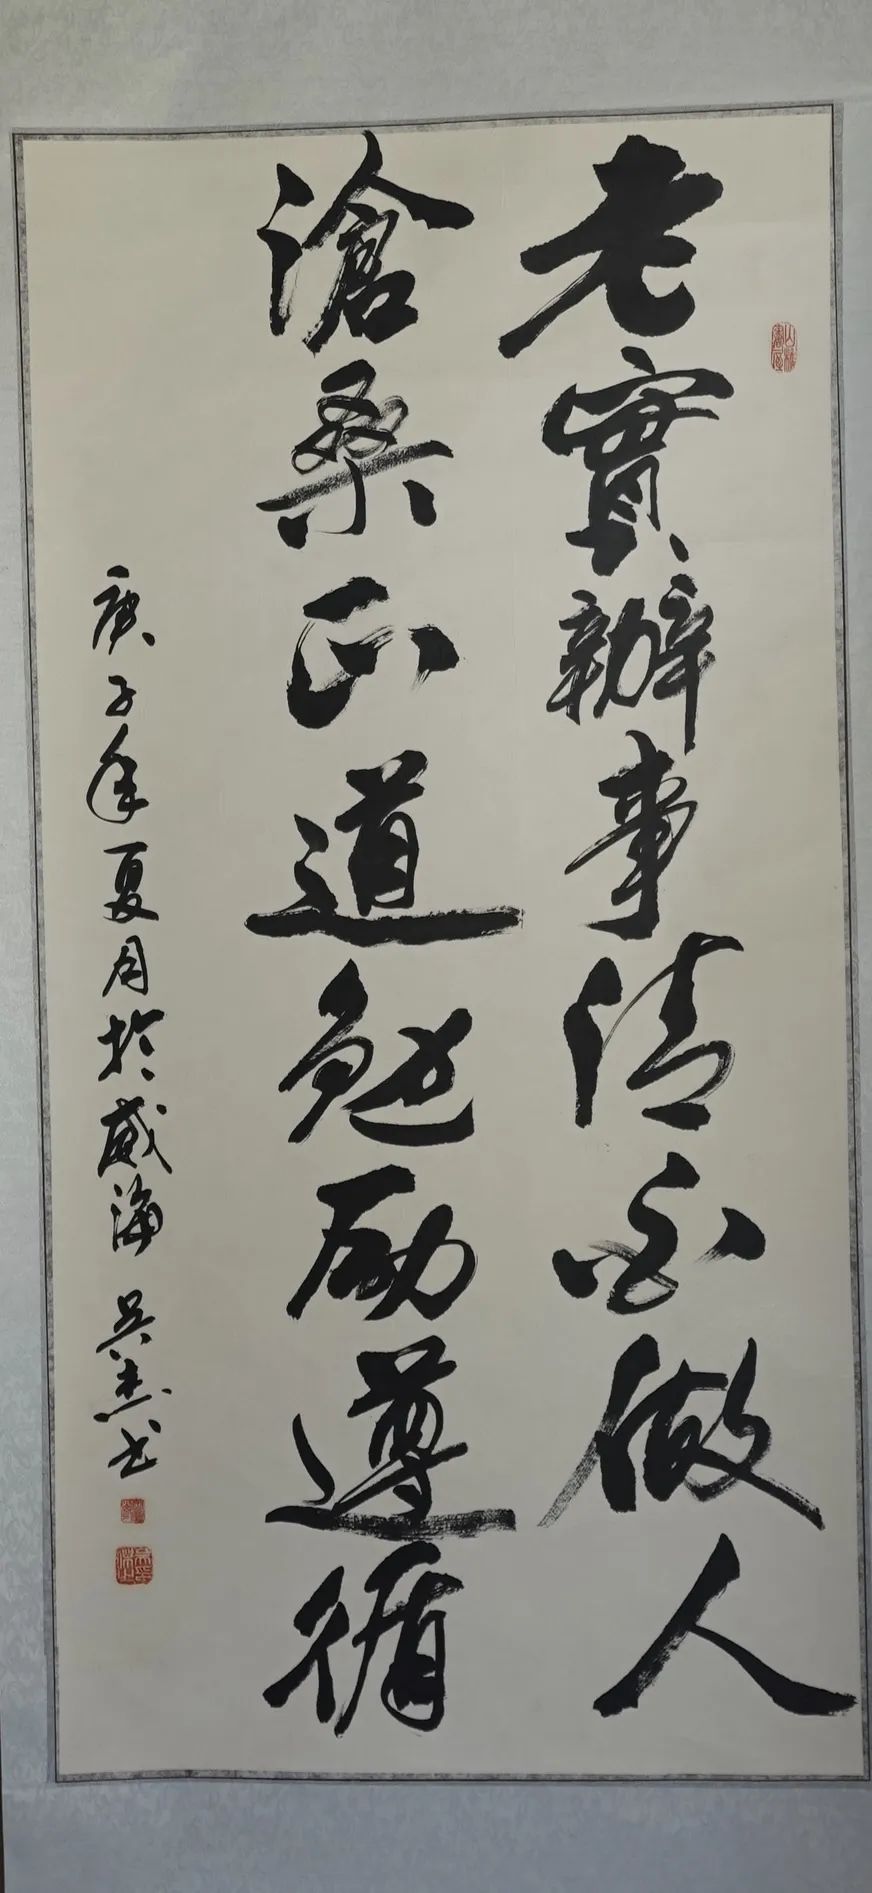 老實辦事清白做人
滄桑正道勉励遵循
庚子年夏月於威海 吴杰书